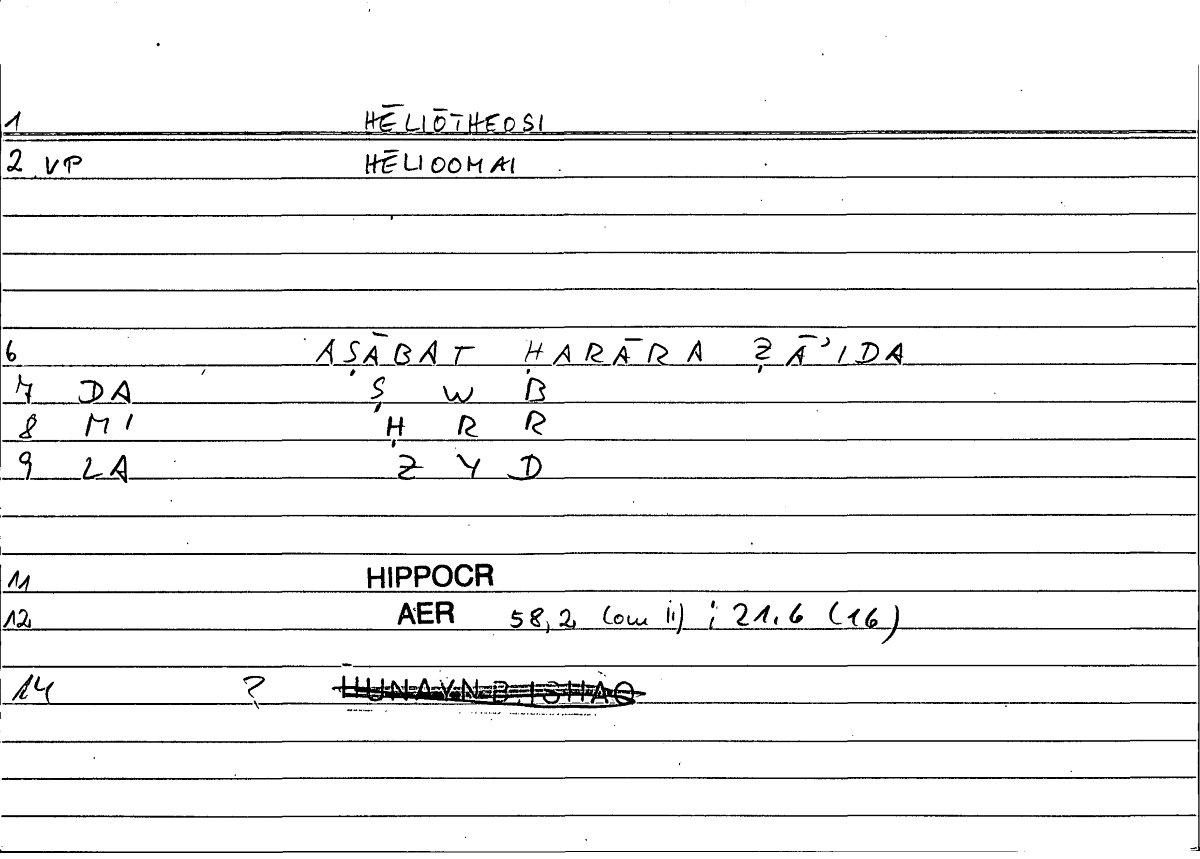 1 HĒLIŌTHEOSI
2 VP HĒLIOOMAI
6 AṢĀBAT ḤARĀRA ẒĀʾIDA
7 DA Ṣ W B
8 MI Ḥ R R
9 LA Z Y D
11 HIPPOCR
12 AER 58,2 (om ii) ; 21.6 (16)
14 ? HUNAYN B. ISHAQ